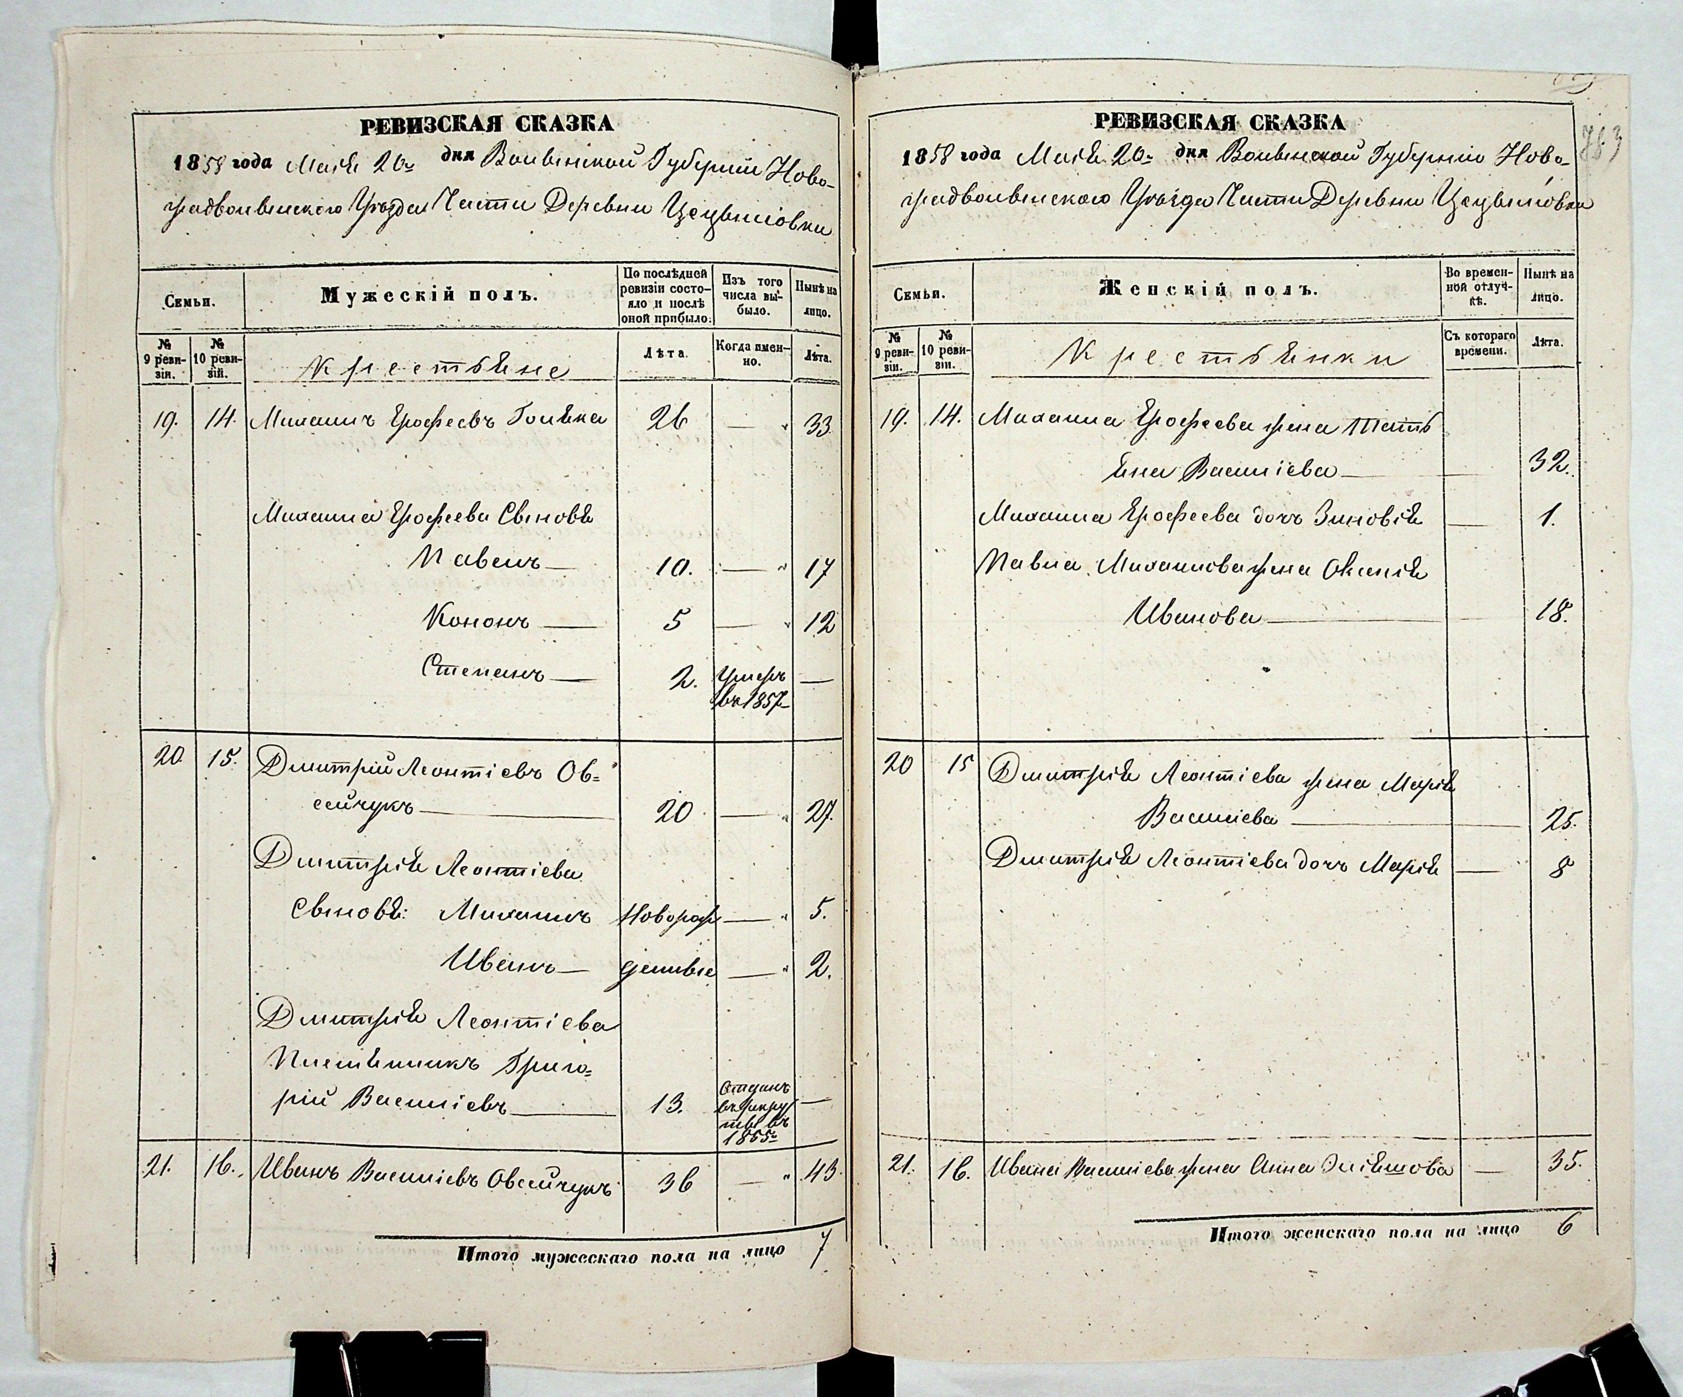 РЕВИЗСКАЯ СКАЗКА
1858 года Маія 20 дня Волынской Губерніи Ново-
градволынского Уѣзда Части Деревни Цецылiовки
Семьи.
Мужескій полъ.
По послѣдней ревизіи состояло и послѣ оной прибыло.
Изъ того числа выбыло.
Нынѣ на лицо.
№ 9 ревизіи.
№ 10 ревизій.
Крестьяне
Лѣта.
Когда именно.
Лѣта.
19. 14. Михаилъ Ерофеевъ Голяка 26 — " 33
Михаила Ерофеева Сыновья
Павелъ — 10. — " 17
Кононъ — 5 — " 12
Степанъ — 2. Умеръ —
въ 1857
20 15. Дмитрій Леонтіевъ Ов=
сейчукъ — 20 — " 27.
Дмитрія Леонтіева
Сыновья: Михаилъ Новорож — " 5.
Иванъ — денные — " 2.
Дмитрія Леонтіева
Племянникъ Григо=
рій Василіевъ — 13. Отданъ въ рекруты въ 1855 —
21. 16. Иванъ Василіевъ Овсейчукъ 36 — " 43.
Итого мужескаго пола на лицо 7
783
РЕВИЗСКАЯ СКАЗКА
1858 года Маія 20 дня Волынской Губерніи Ново-
градволынского Уѣзда Части Деревни Цецылiовки
Семьи.
Женскій полъ.
Во временной отлучкѣ.
Нынѣ на лицо.
№ 9 ревизіи.
№ 10 ревизіи.
Крестьянки
Съ котораго времени.
Лѣта.
19. 14. Михаила Ерофеева жена Тать
яна Василіева — 32.
Михаила Ерофеева дочь Зиновія — 1.
Павла Михаилова жена Оксенія
Иванова — 18.
20 15 Дмитрія Леонтіева жена Марія
Василіева — 25.
Дмитрія Леонтіева дочь Марія — 8
21. 16. Ивана Василіева жена Анна — 35.
Итого женскаго пола на лицо 6